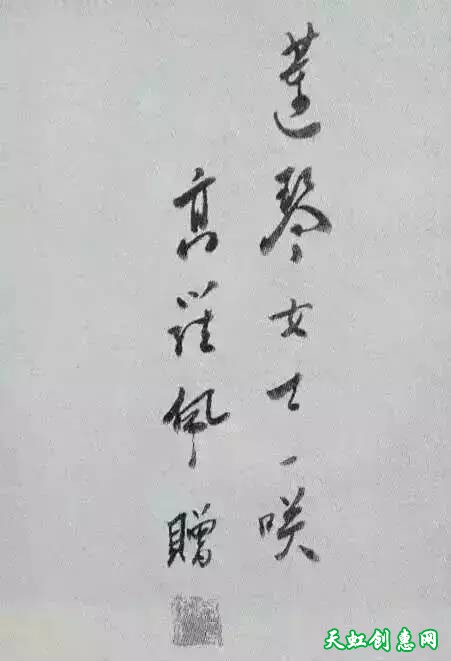 蓮琴女士一咲
高羅佩贈
天虹创惠网